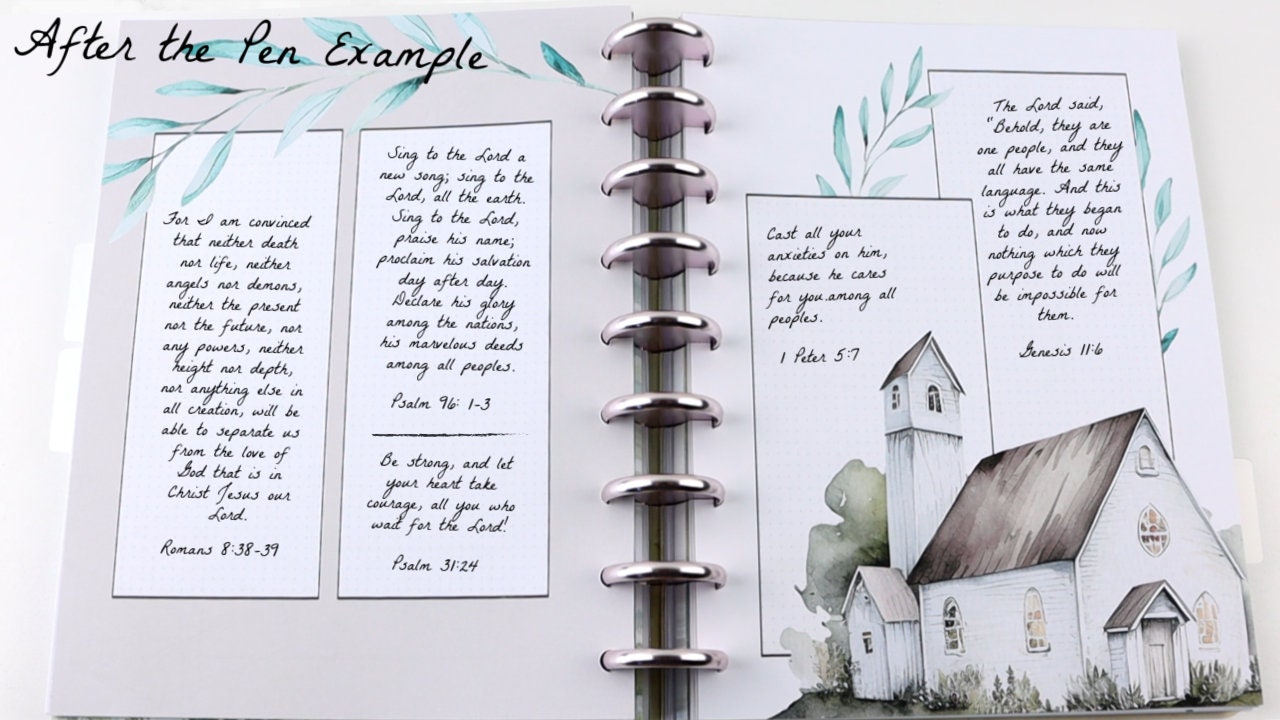 After the Pen Example
For I am convinced
that neither death
nor life, neither
angels nor demons,
neither the present
nor the future, nor
any powers, neither
height nor depth,
nor anything else in
all creation, will be
able to separate us
from the love of
God that is in
Christ Jesus our
Lord.
Romans 8:38-39
Sing to the Lord a
new song; sing to the
Lord, all the earth.
Sing to the Lord,
praise his name;
proclaim his salvation
day after day.
Declare his glory
among the nations,
his marvelous deeds
among all peoples.
Psalm 96: 1-3
Be strong, and let
your heart take
courage, all you who
wait for the Lord!
Psalm 31:24
Cast all your
anxieties on him,
because he cares
for you.among all
peoples.
1 Peter 5:7
The Lord said,
"Behold, they are
one people, and they
all have the same
language. And this
is what they began
to do, and now
nothing which they
purpose to do will
be impossible for
them.
Genesis 11:6